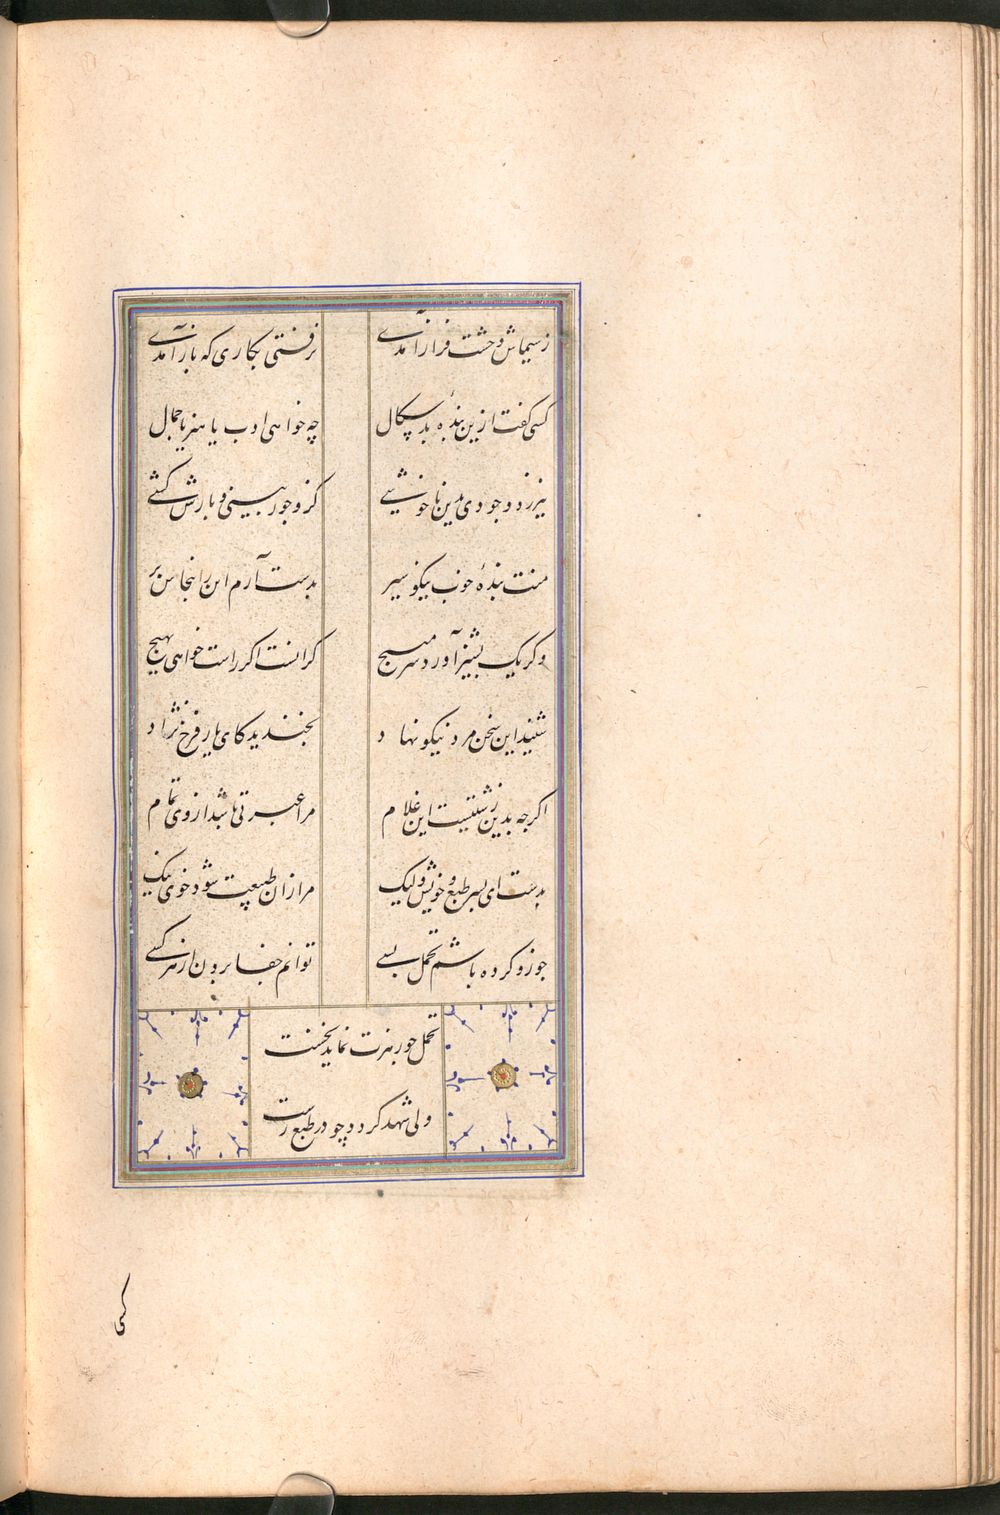 ز سیماش وحشت فراز آمدی نرفتی بکاری که باز آمدی
کسی گفت ازین بنده بد سکال چه خواهی ادب یا هنر یا جمال
نیرزد وجودی بدین ناخوشی که زو جور بینی و بارش کشی
منت بنده خوب نیکو سیر بدست آرم این را نخاس بر
وکر یک پشیز آورد سر مپیچ کرانست اگر راست خواهی بهیچ
شنید این سخن مرد نیکو نهاد بخندید کای یار فرخ نژاد
اکرچه بدین زشتیست این غلام مرا عبرتی باشد از وی تمام
بدست ای پسر طبع و خویش ولیک مرا زان طبیعت شود خوی نیک
چو زو کرده باشم تحمل بسی توانم جفا بردن از هر کسی
تحمل چو زهرت نماید نخست
ولی شهد کردد چو در طبع رست
کسی